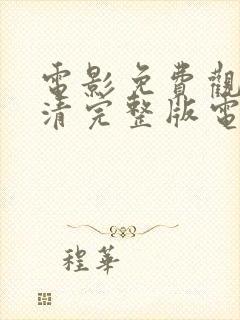 電影免費觀
清完整版電
程華